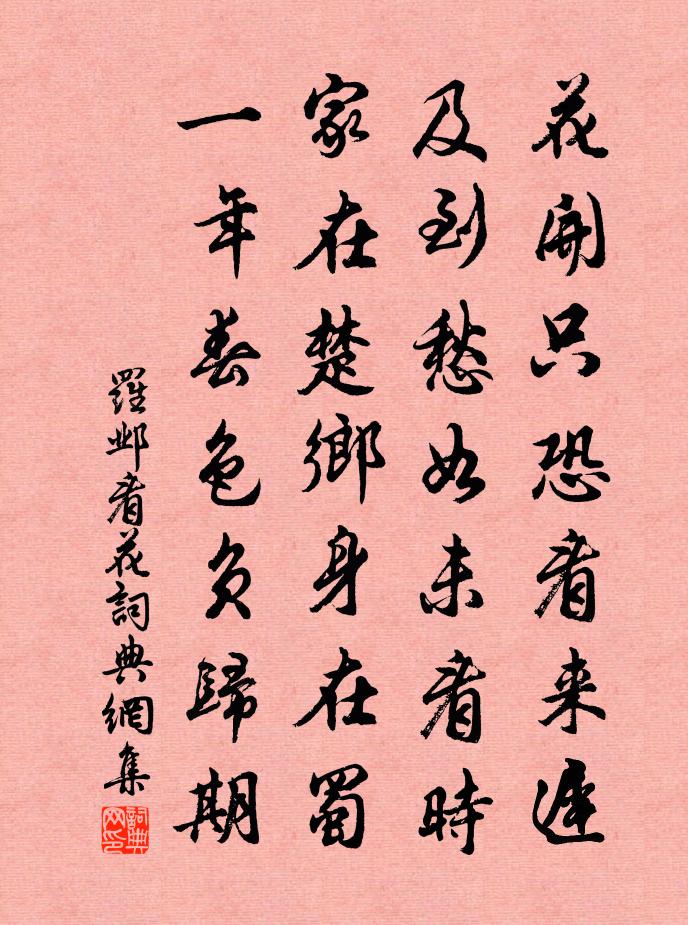 花開只恐看来遲
及到愁如未看時
家在楚鄉身在蜀
一年春色負歸期
羅鄴看花詞典網集
詞典网印